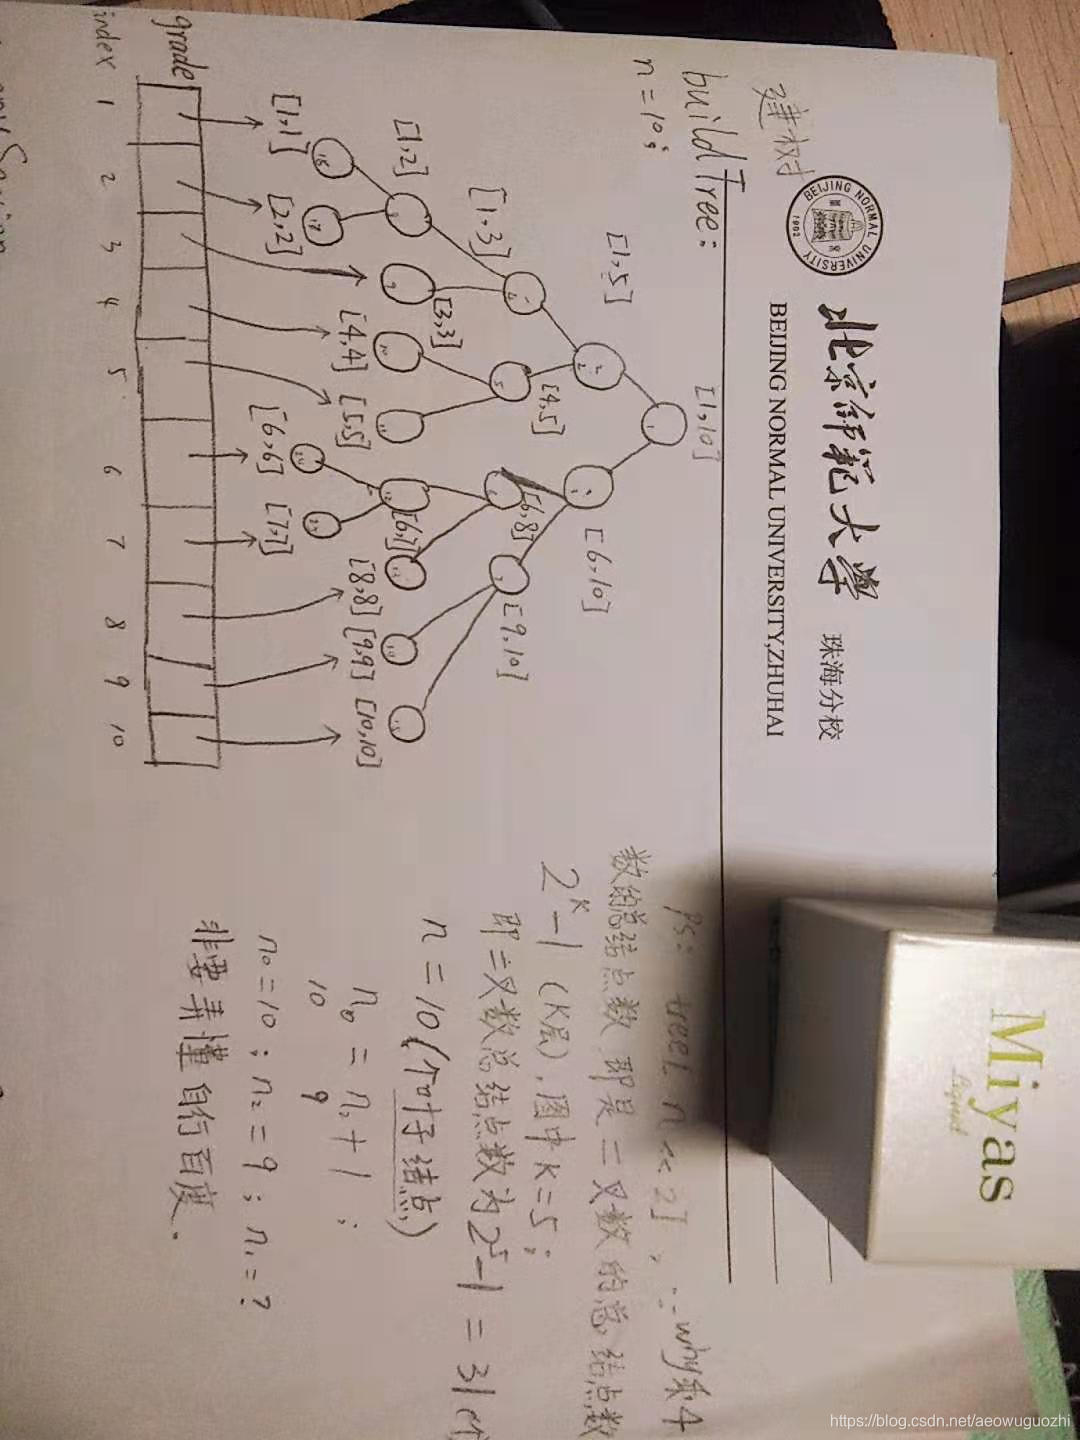 BEIJING NORMAL UNIVERSITY
1902
北京师范大学 珠海分校
BEIJING NORMAL UNIVERSITY,ZHUHAI
建树
buildTree:
n = 10;
[1,10]
[1,5]
[6,10]
[1,3]
[4,5]
[6,8]
[9,10]
[1,2]
[3,3]
[4,4]
[5,5]
[6,7]
[8,8]
[9,9]
[10,10]
[1,1]
[2,2]
[6,6]
[7,7]
grade
index 1 2 3 4 5 6 7 8 9 10
ps: tree[ n<<2], ∵ why乘4
数的总结点数 即是二叉数的总结点数
2^k-1 (K层), 图中K=5;
即二叉数总结点数为2^5-1 = 31个
n = 10(个叶子结点)
n₀ = n₂ + 1 ;
10 9
n₀=10 ; n₂=9 ; n₁=?
非要弄懂自行百度.
Miyas
Liquid
https://blog.csdn.net/aeowuguozhi